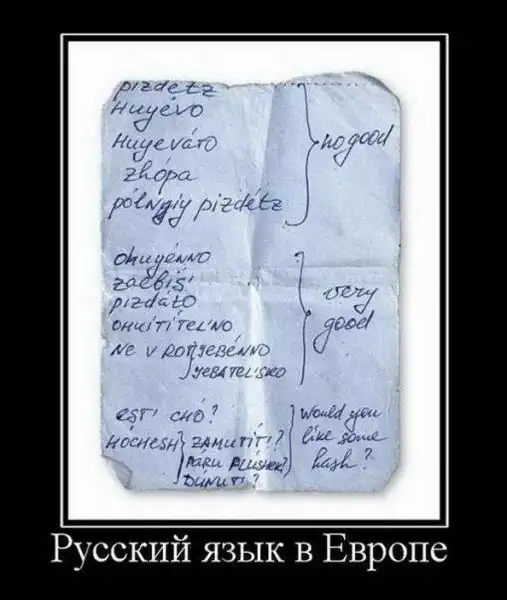 pizdetz
Huyévo
Huyeváto
zhópa
pólnyiy pizdétz
no good
ohuyénno
zaebiś
pizdáto
OHUÍTÍTEL'NO
NE V ROT JEBÉNNO
JEBATEL'SKO
very
good
EST' CHÓ?
HÓCHESH ZAMUTÍT'?
PÁRU PLÚSHEK?
DÚNUT'?
Would you
like some
hash?
Русский язык в Европе